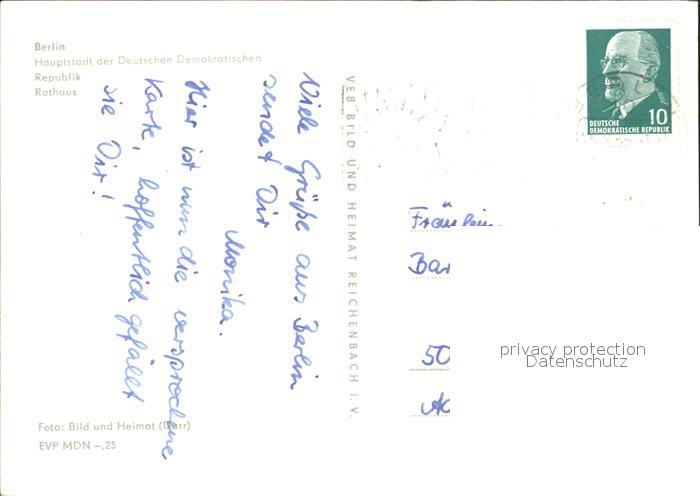 Berlin
Hauptstadt der Deutschen Demokratischen
Republik
Rathaus
Viele Grüße aus Berlin
sendet Dir
Monika.
Hier ist nun die versprochene
Karte, hoffentlich gefällt
sie Dir!
VEB BILD UND HEIMAT REICHENBACH I. V.
10
DEUTSCHE
DEMOKRATISCHE REPUBLIK
Fräulein
Bar
50
privacy protection
Datenschutz
Foto: Bild und Heimat (Darr)
EVP MDN –,25